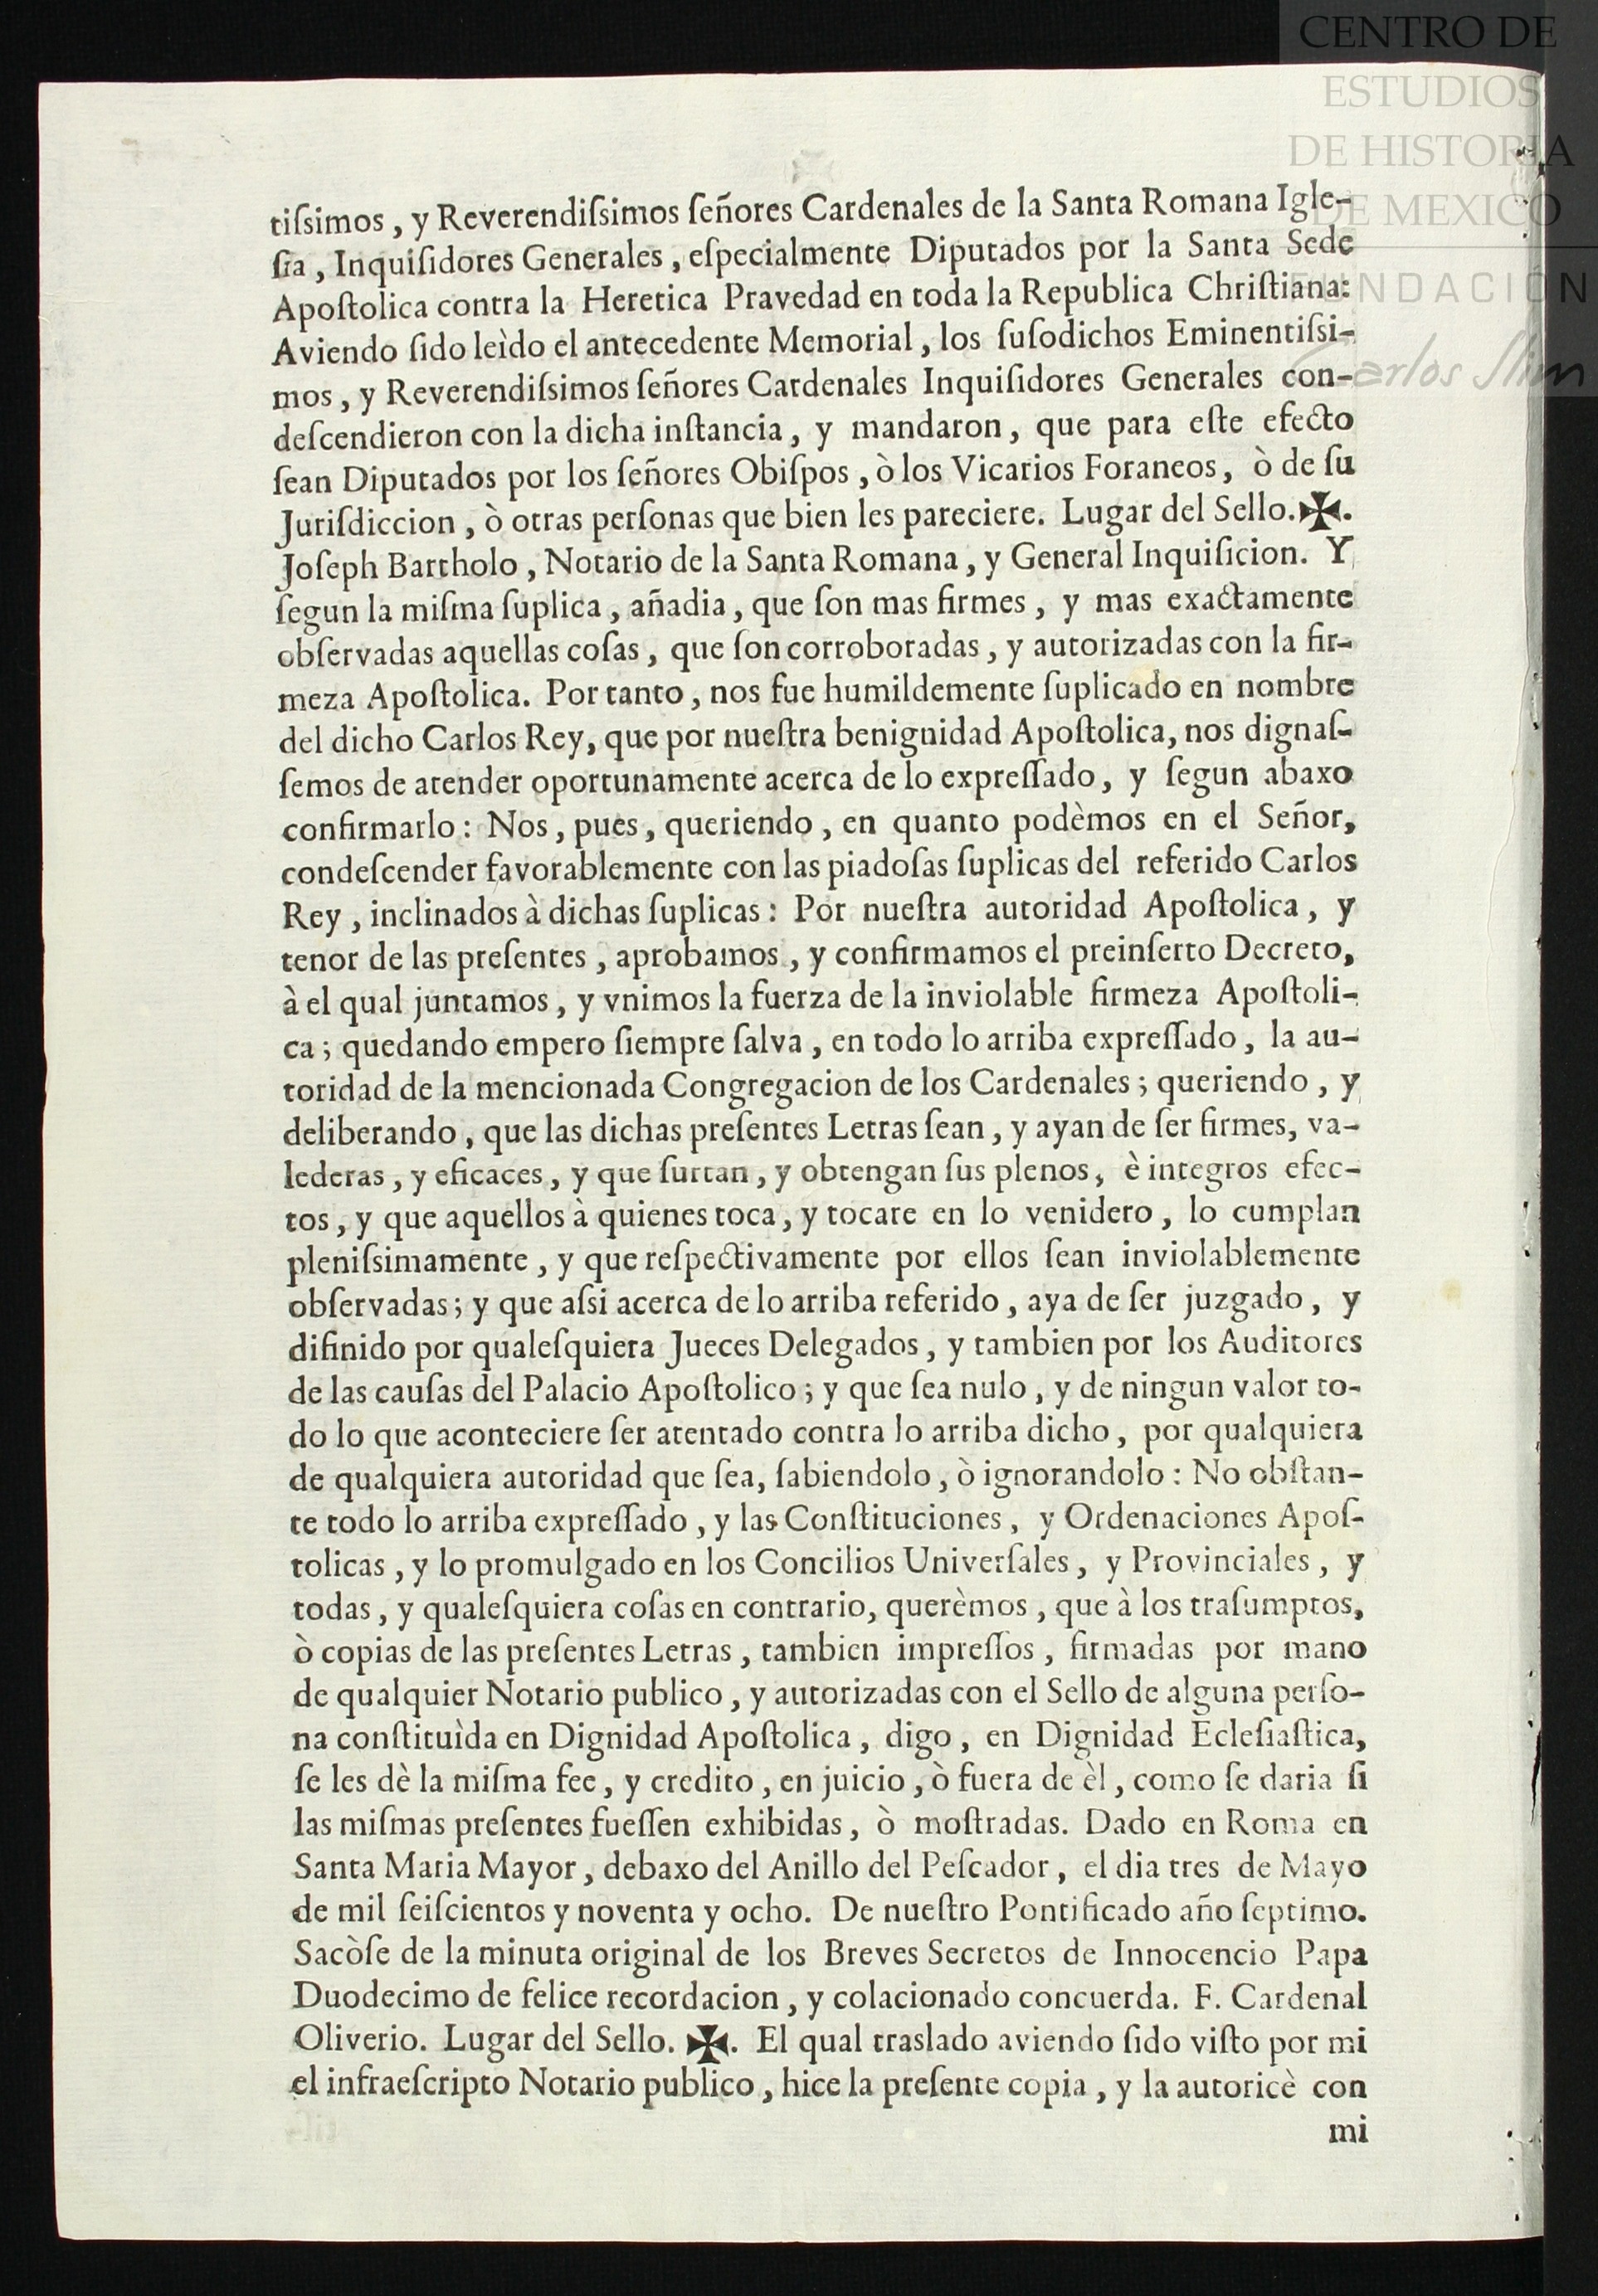 CENTRO DE
ESTUDIOS
DE HISTORIA
DE MEXICO
FUNDACIÓN
Carlos Slim
tiſsimos, y Reverendiſsimos ſeñores Cardenales de la Santa Romana Igle-
ſia, Inquiſidores Generales, eſpecialmente Diputados por la Santa Sede
Apoſtolica contra la Heretica Pravedad en toda la Republica Chriſtiana:
Aviendo ſido leìdo el antecedente Memorial, los ſuſodichos Eminentiſsi-
mos, y Reverendiſsimos ſeñores Cardenales Inquiſidores Generales con-
deſcendieron con la dicha inſtancia, y mandaron, que para eſte efecto
ſean Diputados por los ſeñores Obiſpos, ò los Vicarios Foraneos, ò de ſu
Juriſdiccion, ò otras perſonas que bien les pareciere. Lugar del Sello. ✠.
Joſeph Bartholo, Notario de la Santa Romana, y General Inquiſicion. Y
ſegun la miſma ſuplica, añadia, que ſon mas firmes, y mas exactamente
obſervadas aquellas coſas, que ſon corroboradas, y autorizadas con la fir-
meza Apoſtolica. Por tanto, nos fue humildemente ſuplicado en nombre
del dicho Carlos Rey, que por nueſtra benignidad Apoſtolica, nos dignaſ-
ſemos de atender oportunamente acerca de lo expreſſado, y ſegun abaxo
confirmarlo: Nos, pues, queriendo, en quanto podèmos en el Señor,
condeſcender favorablemente con las piadoſas ſuplicas del referido Carlos
Rey, inclinados à dichas ſuplicas: Por nueſtra autoridad Apoſtolica, y
tenor de las preſentes, aprobamos, y confirmamos el preinſerto Decreto,
à el qual juntamos, y vnimos la fuerza de la inviolable firmeza Apoſtoli-
ca; quedando empero ſiempre ſalva, en todo lo arriba expreſſado, la au-
toridad de la mencionada Congregacion de los Cardenales; queriendo, y
deliberando, que las dichas preſentes Letras ſean, y ayan de ſer firmes, va-
lederas, y eficaces, y que ſurtan, y obtengan ſus plenos, è integros efec-
tos, y que aquellos à quienes toca, y tocare en lo venidero, lo cumplan
pleniſsimamente, y que reſpectivamente por ellos ſean inviolablemente
obſervadas; y que aſsi acerca de lo arriba referido, aya de ſer juzgado, y
difinido por qualeſquiera Jueces Delegados, y tambien por los Auditores
de las cauſas del Palacio Apoſtolico; y que ſea nulo, y de ningun valor to-
do lo que aconteciere ſer atentado contra lo arriba dicho, por qualquiera
de qualquiera autoridad que ſea, ſabiendolo, ò ignorandolo: No obſtan-
te todo lo arriba expreſſado, y las Conſtituciones, y Ordenaciones Apoſ-
tolicas, y lo promulgado en los Concilios Univerſales, y Provinciales, y
todas, y qualeſquiera coſas en contrario, querèmos, que à los traſumptos,
ò copias de las preſentes Letras, tambien impreſſos, firmadas por mano
de qualquier Notario publico, y autorizadas con el Sello de alguna perſo-
na conſtituìda en Dignidad Apoſtolica, digo, en Dignidad Ecleſiaſtica,
ſe les dè la miſma fee, y credito, en juicio, ò fuera de èl, como ſe daria ſi
las miſmas preſentes fueſſen exhibidas, ò moſtradas. Dado en Roma en
Santa Maria Mayor, debaxo del Anillo del Peſcador, el dia tres de Mayo
de mil ſeiſcientos y noventa y ocho. De nueſtro Pontificado año ſeptimo.
Sacòſe de la minuta original de los Breves Secretos de Innocencio Papa
Duodecimo de felice recordacion, y colacionado concuerda. F. Cardenal
Oliverio. Lugar del Sello. ✠. El qual traslado aviendo ſido viſto por mi
el infraeſcripto Notario publico, hice la preſente copia, y la autoricè con
mi